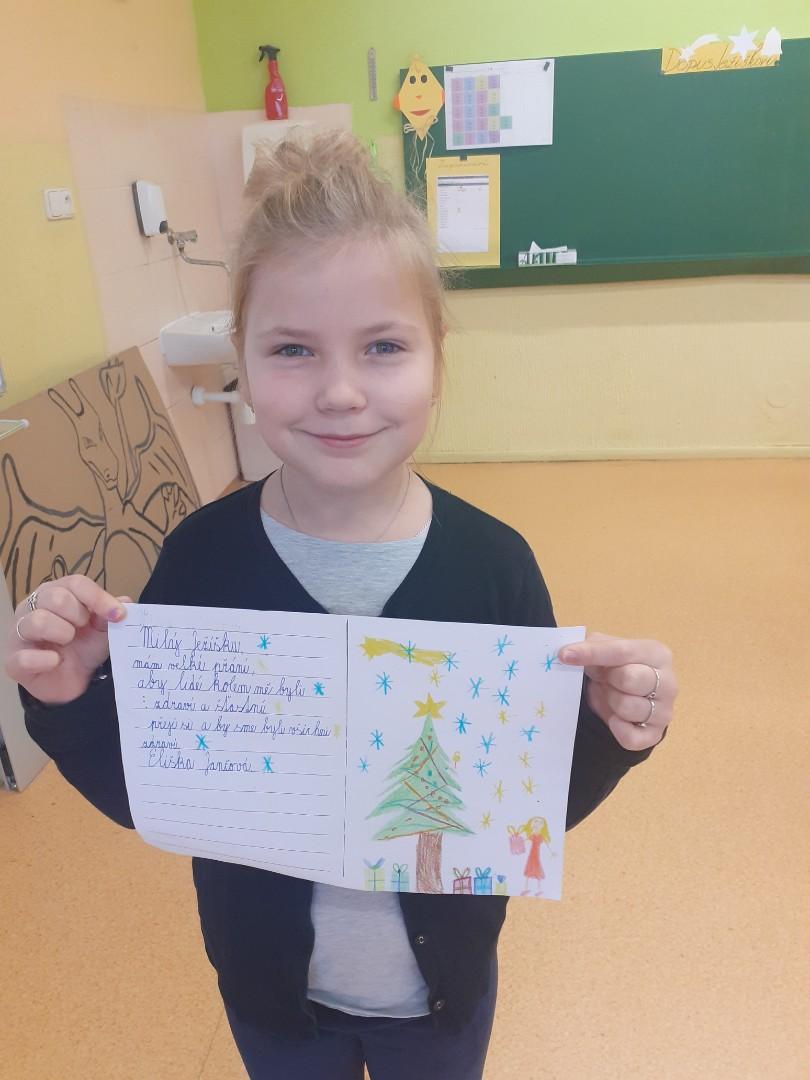 Dopis Ježíškovi
Milý Ježíšku,
mám velké přání,
aby lidé kolem mě byli
: zdraví a šťastné
přeji si a by sme byli všichni
zdraví
Eliška Jančová